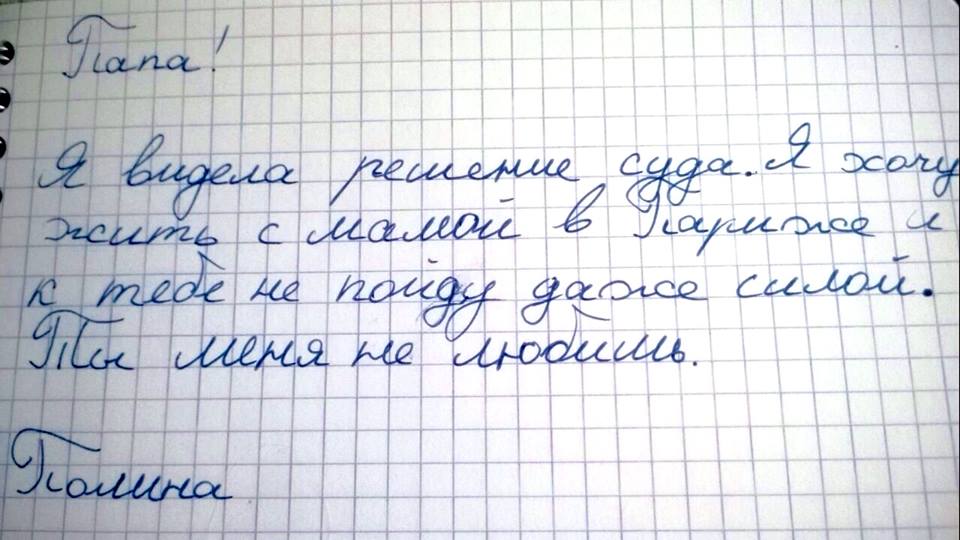 Папа!
Я видела решение суда. Я хочу
жить с мамой в Париже и
к тебе не пойду даже силой.
Ты меня не любишь.
Полина